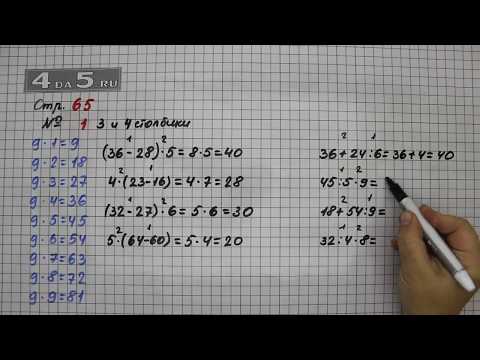 4 DA 5.RU
Стр. 65
№ 1 3 и 4 столбики
9·1=9
9·2=18
9·3=27
9·4=36
9·5=45
9·6=54
9·7=63
9·8=72
9·9=81
1 2
(36-28)·5=8·5=40
2 1
4·(23-16)=4·7=28
1 2
(32-27)·6=5·6=30
2 1
5·(64-60)=5·4=20
2 1
36+24:6=36+4=40
1 2
45:5·9=
2 1
18+54:9=
1 2
32:4·8=